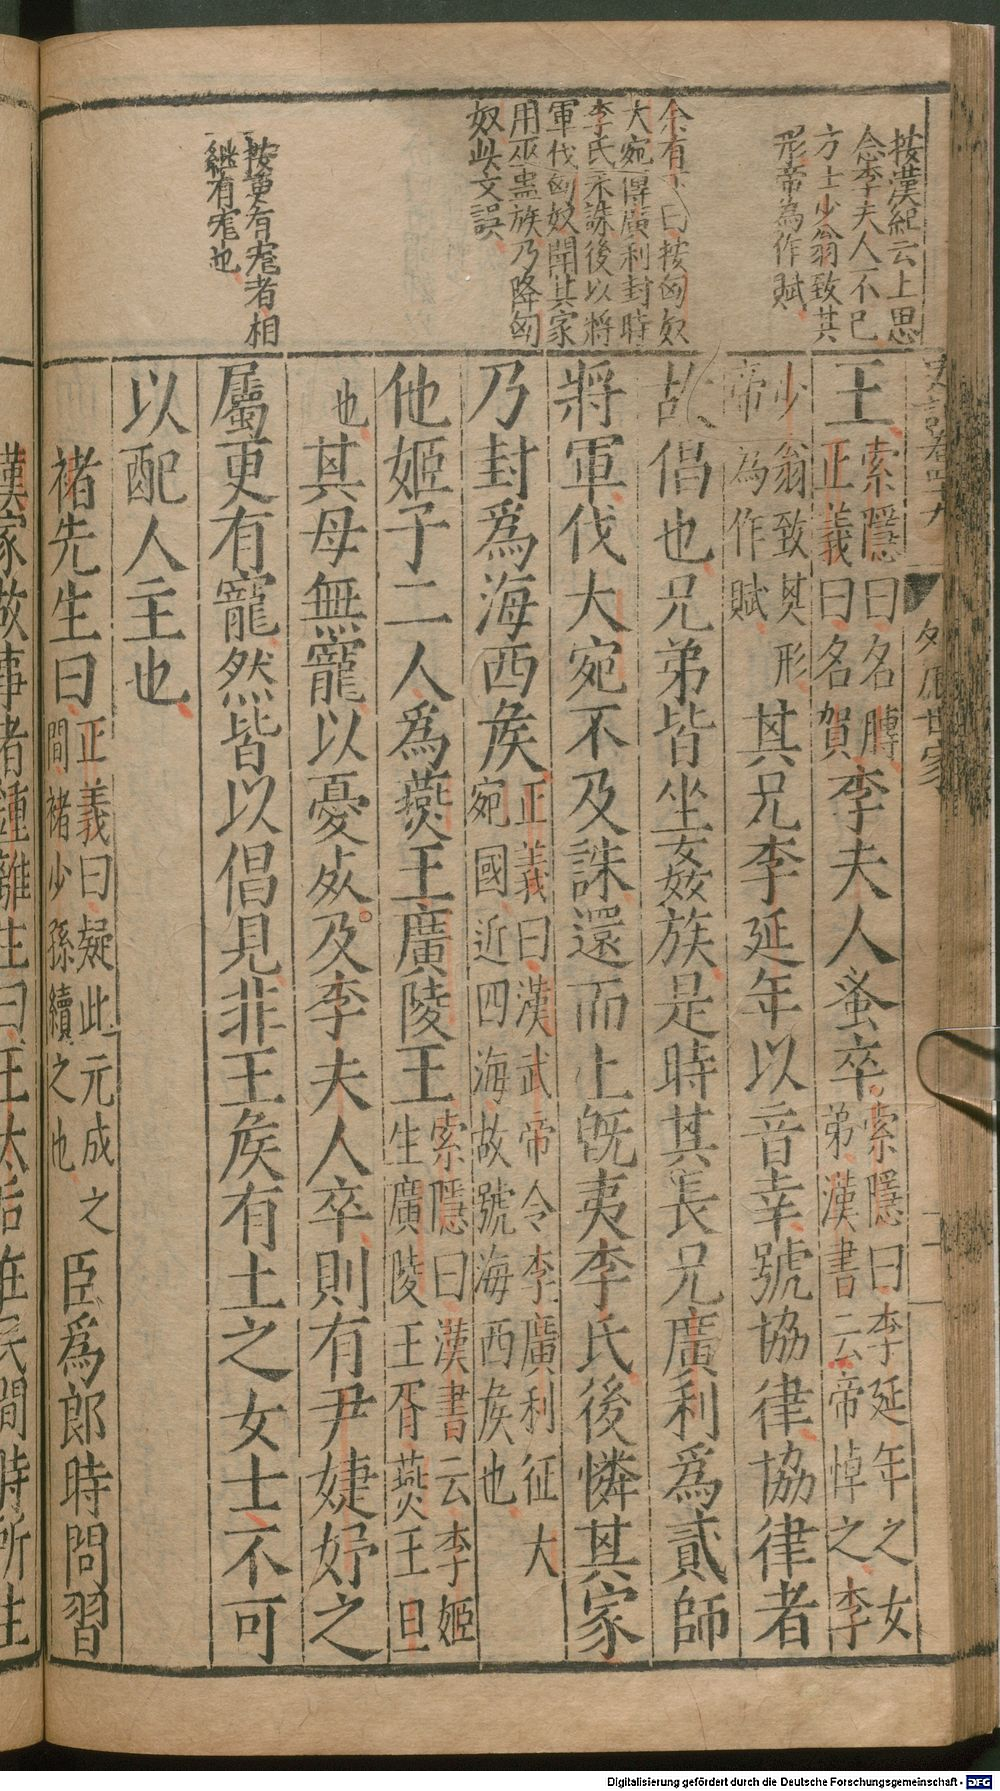 按漢紀云上思
念李夫人不已
方士少翁致其
形帝為作賦
曰按匈奴
大宛傳廣利封時
李氏未誅後以將
軍伐匈奴聞其家
用巫蠱族乃降匈
奴此文誤
按更有寵者相
繼有寵也
史記卷四十九
外戚世家
王索隱曰名髆
正義曰名賀李夫人蚤卒索隱曰李延年之女
弟漢書云帝悼之李
少翁致其形
帝為作賦其兄李延年以音幸號協律協律者
故倡也兄弟皆坐姦族是時其長兄廣利為貳師
將軍伐大宛不及誅還而上旣夷李氏後憐其家
乃封爲海西矦正義曰漢武帝令李廣利征大
宛國近四海故號海西矦也
他姬子二人爲燕王廣陵王索隱曰漢書云李姬
生廣陵王胥燕王旦
也其母無寵以憂死及李夫人卒則有尹婕妤之
屬更有寵然皆以倡見非王矦有土之女士不可
以配人主也
褚先生曰正義曰疑此元成之
間褚少孫續之也臣爲郎時問習
漢家故事者鍾離生曰王太后在民間時所生
Digitalisierung gefördert durch die Deutsche Forschungsgemeinschaft - DFG